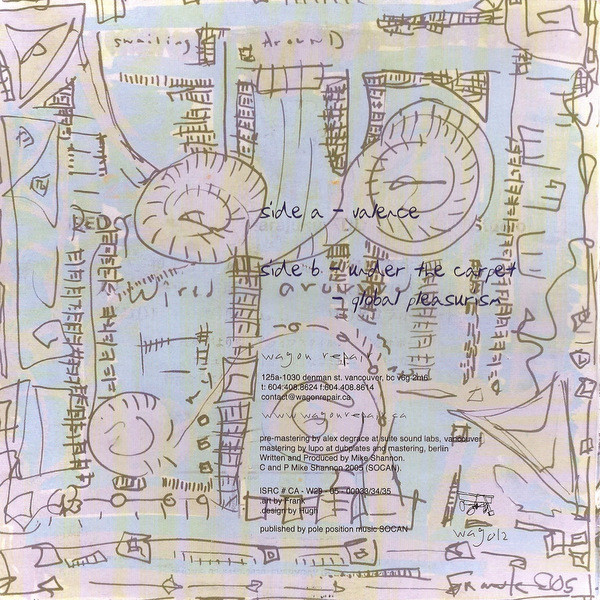 swailing Around
side a - valence
side b - under the carpet
- global pleasurism
Wired around
wagon repair
125a-1030 denman st. vancouver, bc v6g 2m6
t: 604.408.8624 f:604.408.8614
contact@wagonrepair.ca
www.wagonrepair.ca
pre-mastering by alex degrace at suite sound labs, vancouver
mastering by lupo at dubplates and mastering, berlin
Written and Produced by Mike Shannon.
C and P Mike Shannon 2005 (SOCAN).
ISRC # CA - W29 - 05 - 00033/34/35
.art by Frank
.design by Hugh
published by pole position music SOCAN